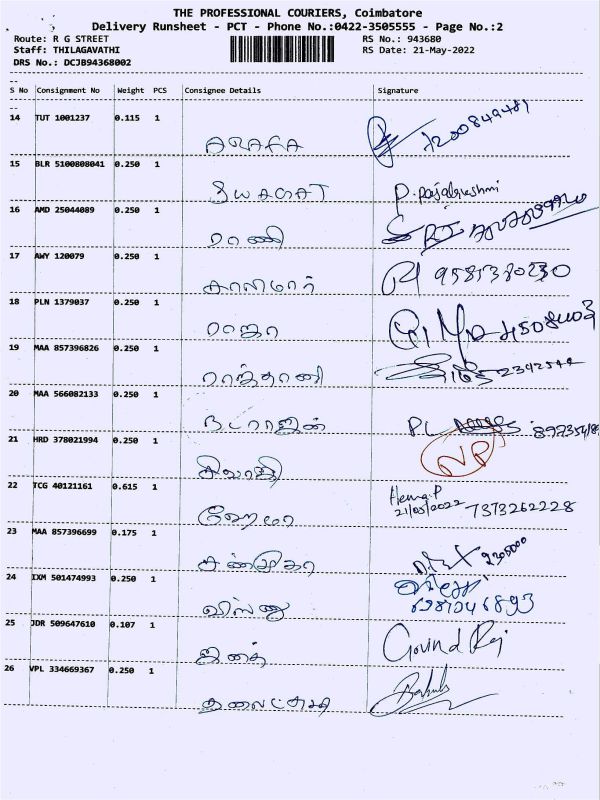 THE PROFESSIONAL COURIERS, Coimbatore
Delivery Runsheet - PCT - Phone No.:0422-3505555 - Page No.:2
Route: R G STREET RS No.: 943680
Staff: THILAGAVATHI RS Date: 21-May-2022
DRS No.: DCJB94368002
S No Consignment No Weight PCS Consignee Details Signature
14 TUT 1001237 0.115 1
15 BLR 5100808041 0.250 1 P. Rajalakshmi
16 AMD 25044089 0.250 1 ராணி
17 AWY 120079 0.250 1 சாலிமார் 9581380230
18 PLN 1379037 0.250 1 ராஜா
19 MAA 857396826 0.250 1
20 MAA 566082133 0.250 1 நடராஜன்
21 HRD 378021994 0.250 1 சிவாஜி NP
22 TCG 40121161 0.615 1 ஹேமா Hema.P 21/05/2022 7373262228
23 MAA 857396699 0.175 1 சண்முகா
24 IXM 501474993 0.250 1 விஸ்ணு
25 JDR 509647610 0.107 1 Govind Raj
26 VPL 334669367 0.250 1